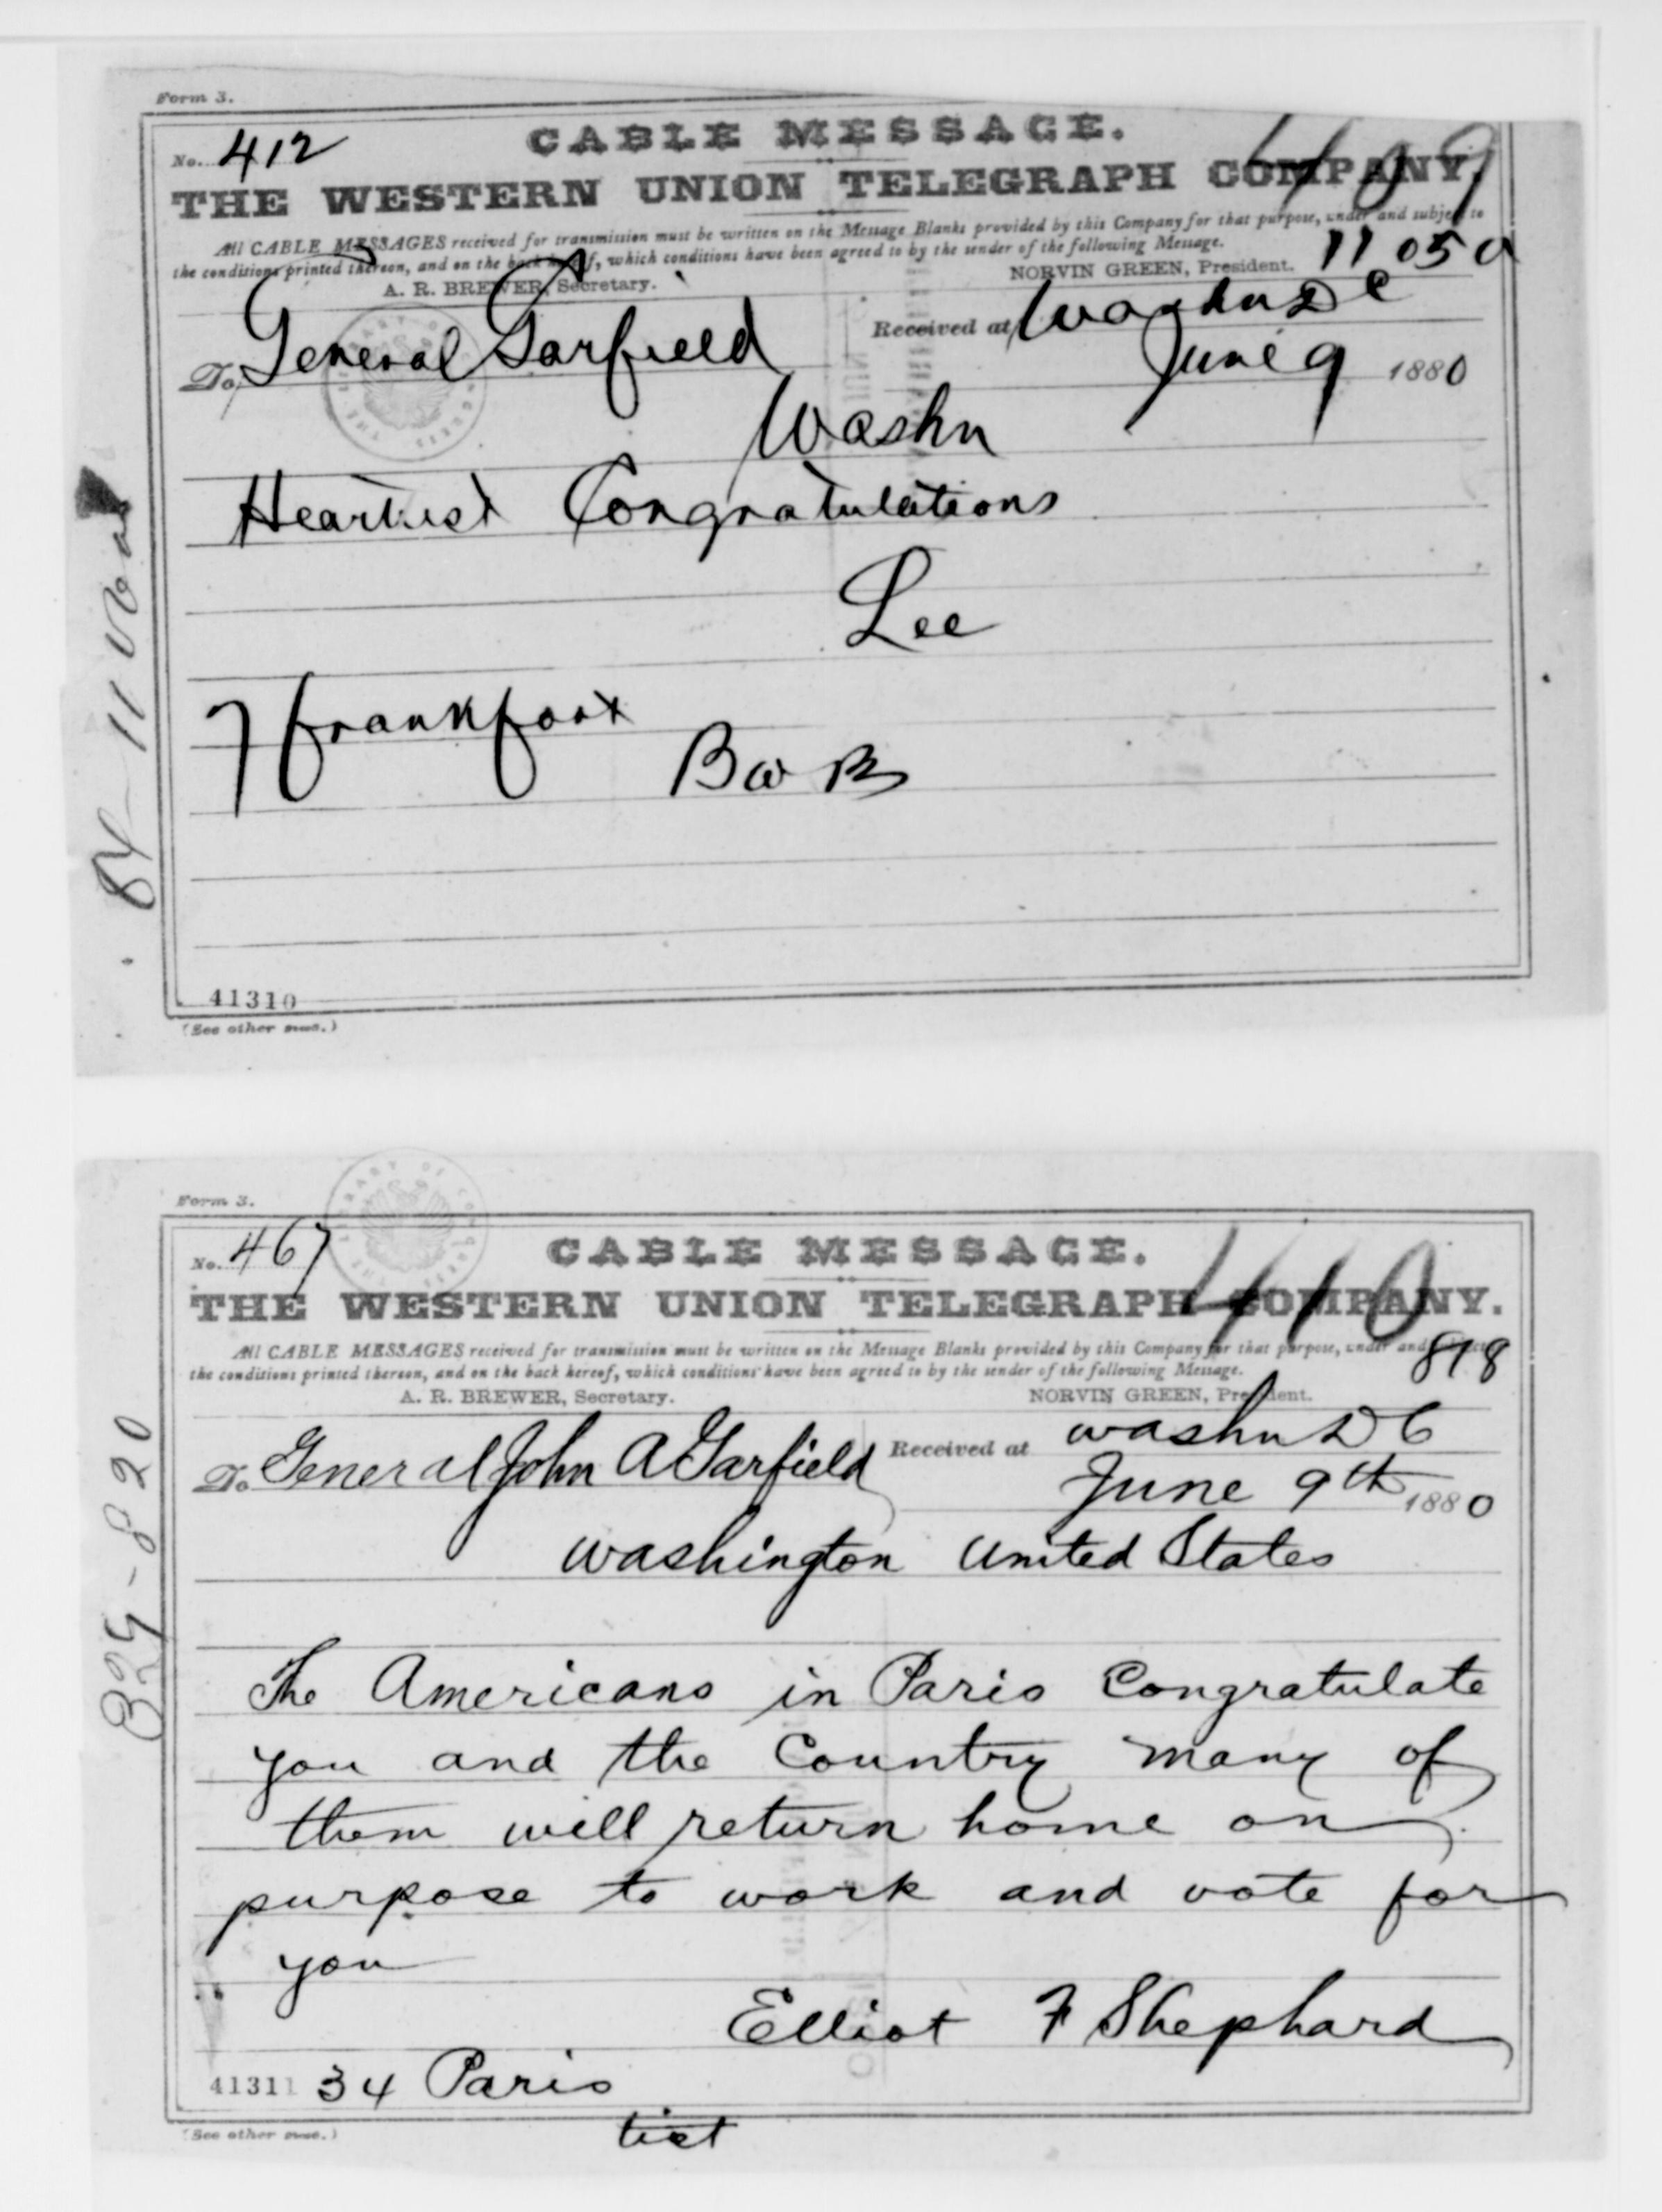 Form 3.
No. 412
CABLE MESSAGE.
409
THE WESTERN UNION TELEGRAPH COMPANY.
All CABLE MESSAGES received for transmission must be written on the Message Blanks provided by this Company for that purpose, under and subject to
the conditions printed thereon, and on the back hereof, which conditions have been agreed to by the sender of the following Message.
A. R. BREWER, Secretary. NORVIN GREEN, President.
11 05 a
Received at Washn D C
To General Garfield
June 9 1880
Washn
Heartiest Congratulations
Lee
7 Frankfort
41310
(See other side.)
Form 3.
No. 467
CABLE MESSAGE.
410
THE WESTERN UNION TELEGRAPH COMPANY.
All CABLE MESSAGES received for transmission must be written on the Message Blanks provided by this Company for that purpose, under and subject to
the conditions printed thereon, and on the back hereof, which conditions have been agreed to by the sender of the following Message.
818
A. R. BREWER, Secretary. NORVIN GREEN, President.
Received at washn D C
To General John A Garfield
June 9th 1880
Washington United States
The Americans in Paris Congratulate
you and the Country many of
them will return home on
purpose to work and vote for
you
Elliot F Shephard
41311 34 Paris
(See other side.)